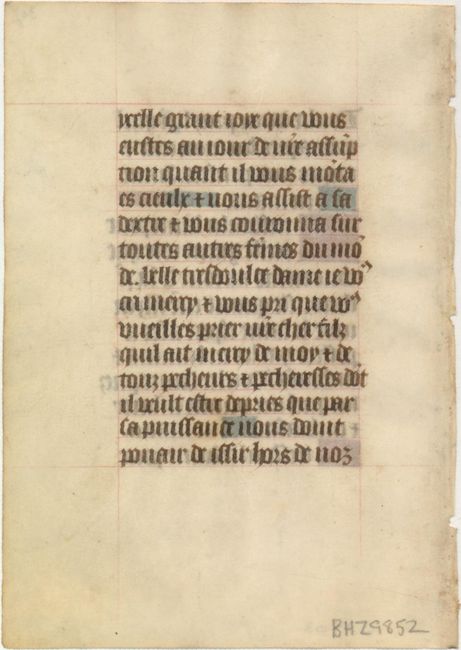 icelle grant ioye que vous
eustes au iour de vr̄e assūp
tion quant il vous mōta
es cieulx ⁊ vous assist a sa
dextre ⁊ vous couronna sur
toutes autres fēmes du mō
de. Belle tresdoulce dame ie vo⁹
cri mercy ⁊ vous pri que vo⁹
vueilles prier vr̄e cher filz
quil ait mercy de moy ⁊ de
touz pecheurs ⁊ pecheresses dōt
il veult estre depries que par
sa puissance nous doint
pouair de issir hors de noz
BHZ9852